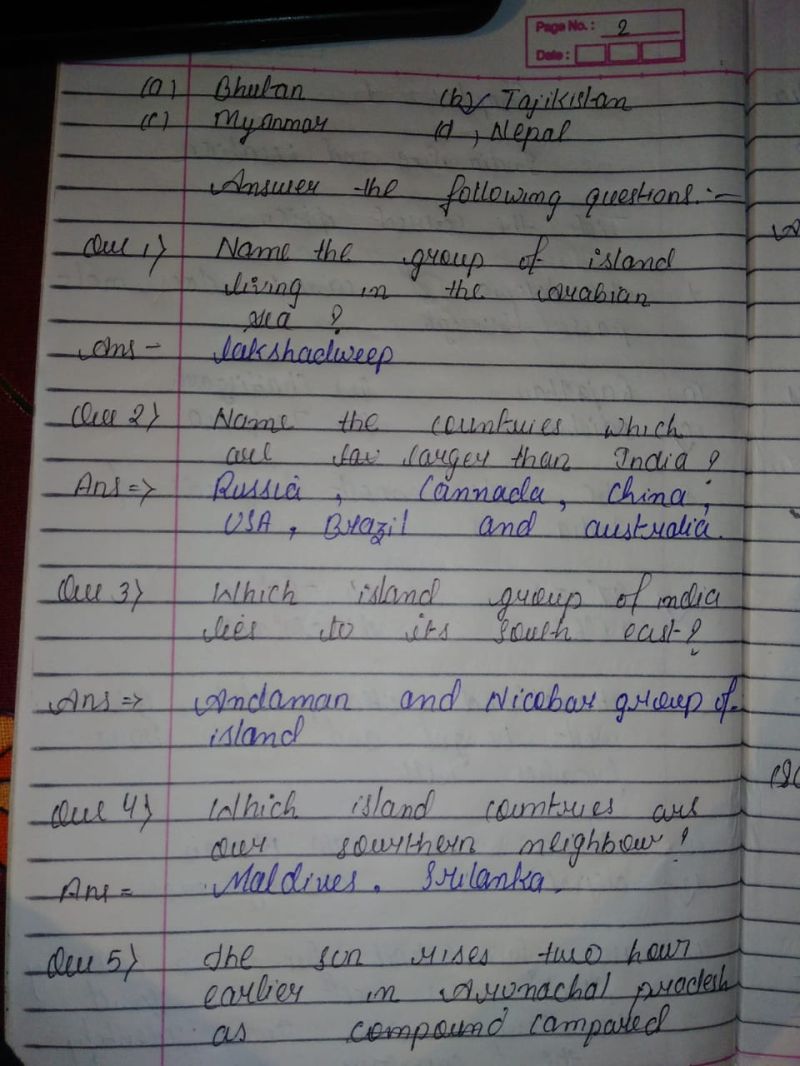 Page No.: 2
Date:
(a) Bhutan (b) Tajikistan
(c) Myanmar (d), Nepal
Answer the following questions.:-
Que 1) Name the group of island
living in the Arabian
sea ?
Ans - lakshadweep
Que 2) Name the countries which
are far larger than India ?
Ans => Russia, Cannada, China,
USA, Brazil and australia.
Que 3) Which island group of india
lies to its south east?
Ans => Andaman and Nicobar group of
island
Que 4) Which island countries are
our sourthern neighbour?
Ans = Maldives, Srilanka.
Que 5) the sun rises two hour
earlier in Arunachal pradesh
as compound campared